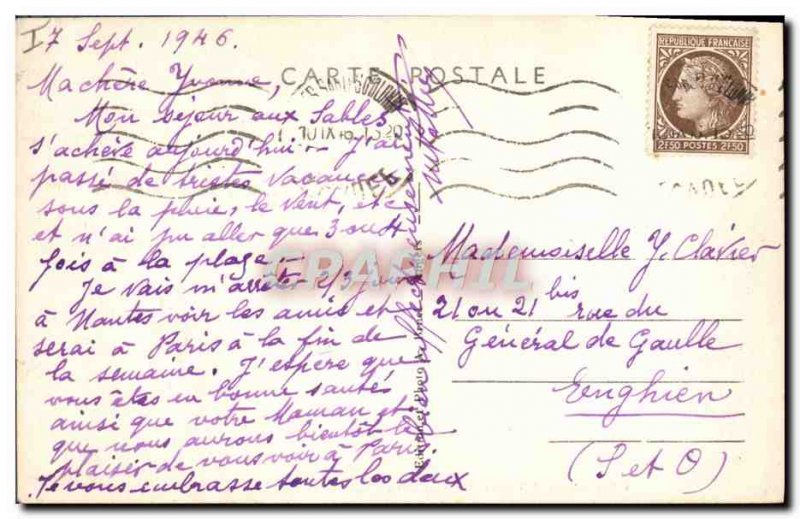 17 Sept. 1946.
Ma chère Yvonne,
Mon séjour aux Sables
s'achève aujourd'hui - J'ai
passé de tristes vacances
sous la pluie, le vent, etc
et n'ai pu aller que 3 ou 4
fois à la plage.-
Je vais m'arrêter 2/3 jours
à Nantes voir les amis et
serai à Paris à la fin de
la semaine. J'espère que
vous êtes en bonne santé
ainsi que votre Maman et
que nous aurons bientôt le
plaisir de vous voir à Paris
Je vous embrasse toutes les deux
affectueusement
CARTE POSTALE
RÉPUBLIQUE FRANÇAISE
2F50 POSTES 2F50
Mademoiselle Y. Clavier
21 ou 21 bis rue du
Général de Gaulle
Enghien
(S et O)
CPAPHIL